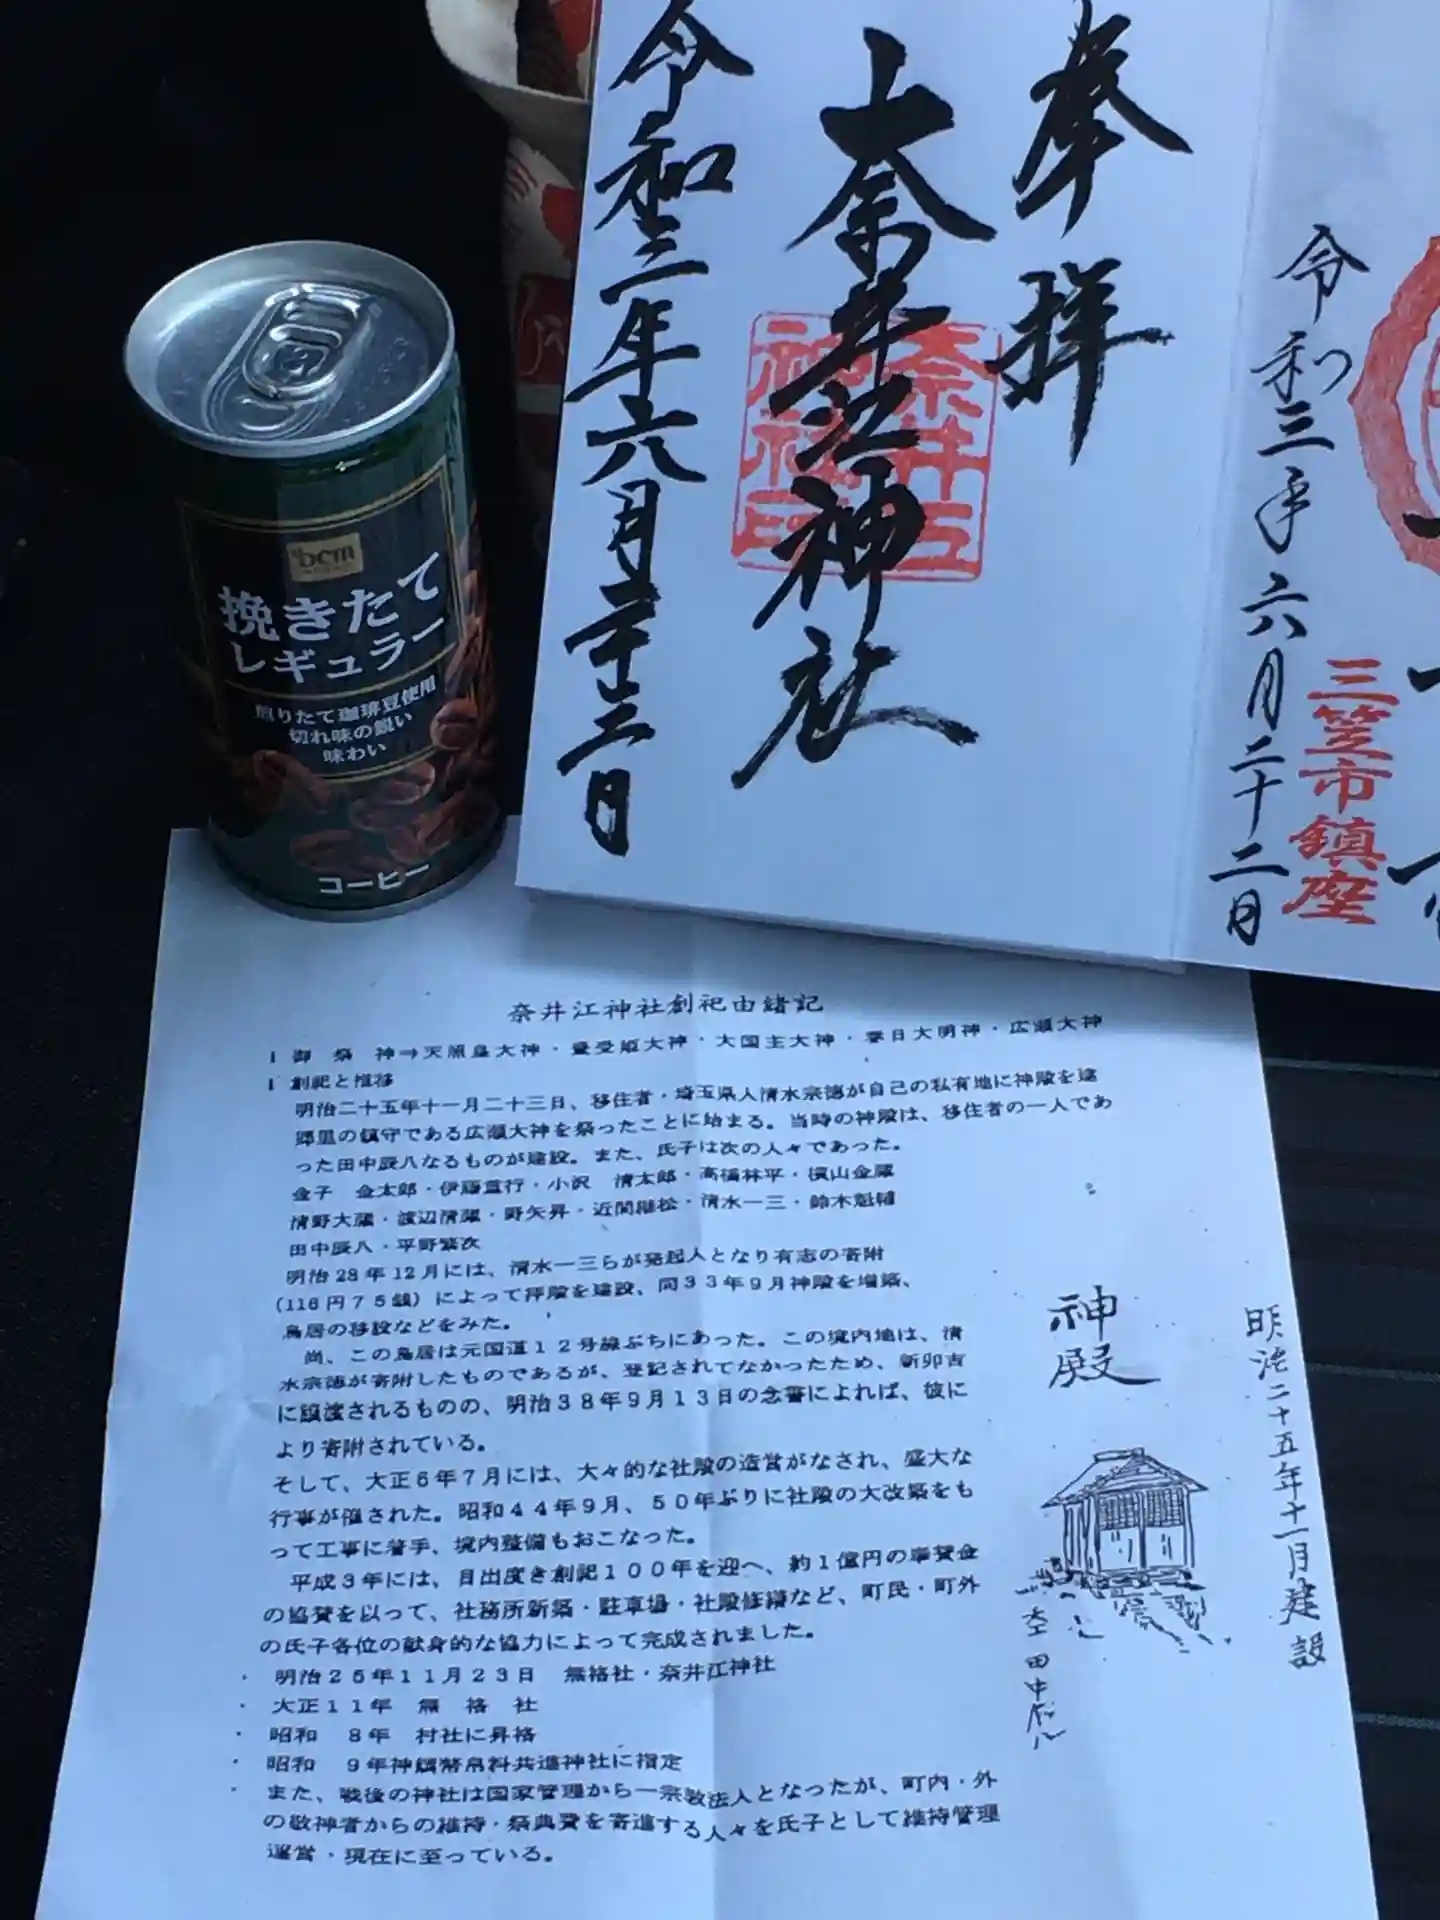 奉拝
奈井江神社
奈井江
神社印
令和三年六月二十二日
令和三年六月二十二日
三笠市鎮座
DCM
挽きたて
レギュラー
煎りたて珈琲豆使用
切れ味の鋭い
味わい
コーヒー
奈井江神社創祀由緒記
1 御 祭 神⇒天照皇大神・豊受姫大神・大国主大神・春日大明神・広瀬大神
1 創祀と推移
明治二十五年十一月二十三日、移住者・埼玉県人清水宗徳が自己の私有地に神殿を建
郷里の鎮守である広瀬大神を祭ったことに始まる。当時の神殿は、移住者の一人であ
った田中辰八なるものが建設。また、氏子は次の人々であった。
金子 金太郎・伊藤重行・小沢 清太郎・高橋林平・横山金蔵
清野大蔵・渡辺清蔵・野矢昇・近間継松・清水一三・鈴木魁輔
田中辰八・平野繁次
明治28年12月には、清水一三らが発起人となり有志の寄附
(116円75銭)によって拝殿を建設、同33年9月神殿を増築、
鳥居の移設などをみた。
尚、この鳥居は元国道12号線ぶちにあった。この境内地は、清
水宗徳が寄附したものであるが、登記されてなかったため、新卯吉
に譲渡されるものの、明治38年9月13日の念書によれば、彼に
より寄附されている。
そして、大正6年7月には、大々的な社殿の造営がなされ、盛大な
行事が催された。昭和44年9月、50年ぶりに社殿の大改築をも
って工事に着手、境内整備もおこなった。
平成3年には、目出度き創祀100年を迎へ、約1億円の奉賛金
の協賛を以って、社務所新築・駐車場・社殿修繕など、町民・町外
の氏子各位の献身的な協力によって完成されました。
・ 明治25年11月23日 無格社・奈井江神社
・ 大正11年 無 格 社
・ 昭和 8年 村社に昇格
・ 昭和 9年神饌幣帛料共進神社に指定
・ また、戦後の神社は国家管理から一宗教法人となったが、町内・外
の敬神者からの維持・祭典費を寄進する人々を氏子として維持管理
運営・現在に至っている。
神殿
明治二十五年十一月建設
大工 田中辰八